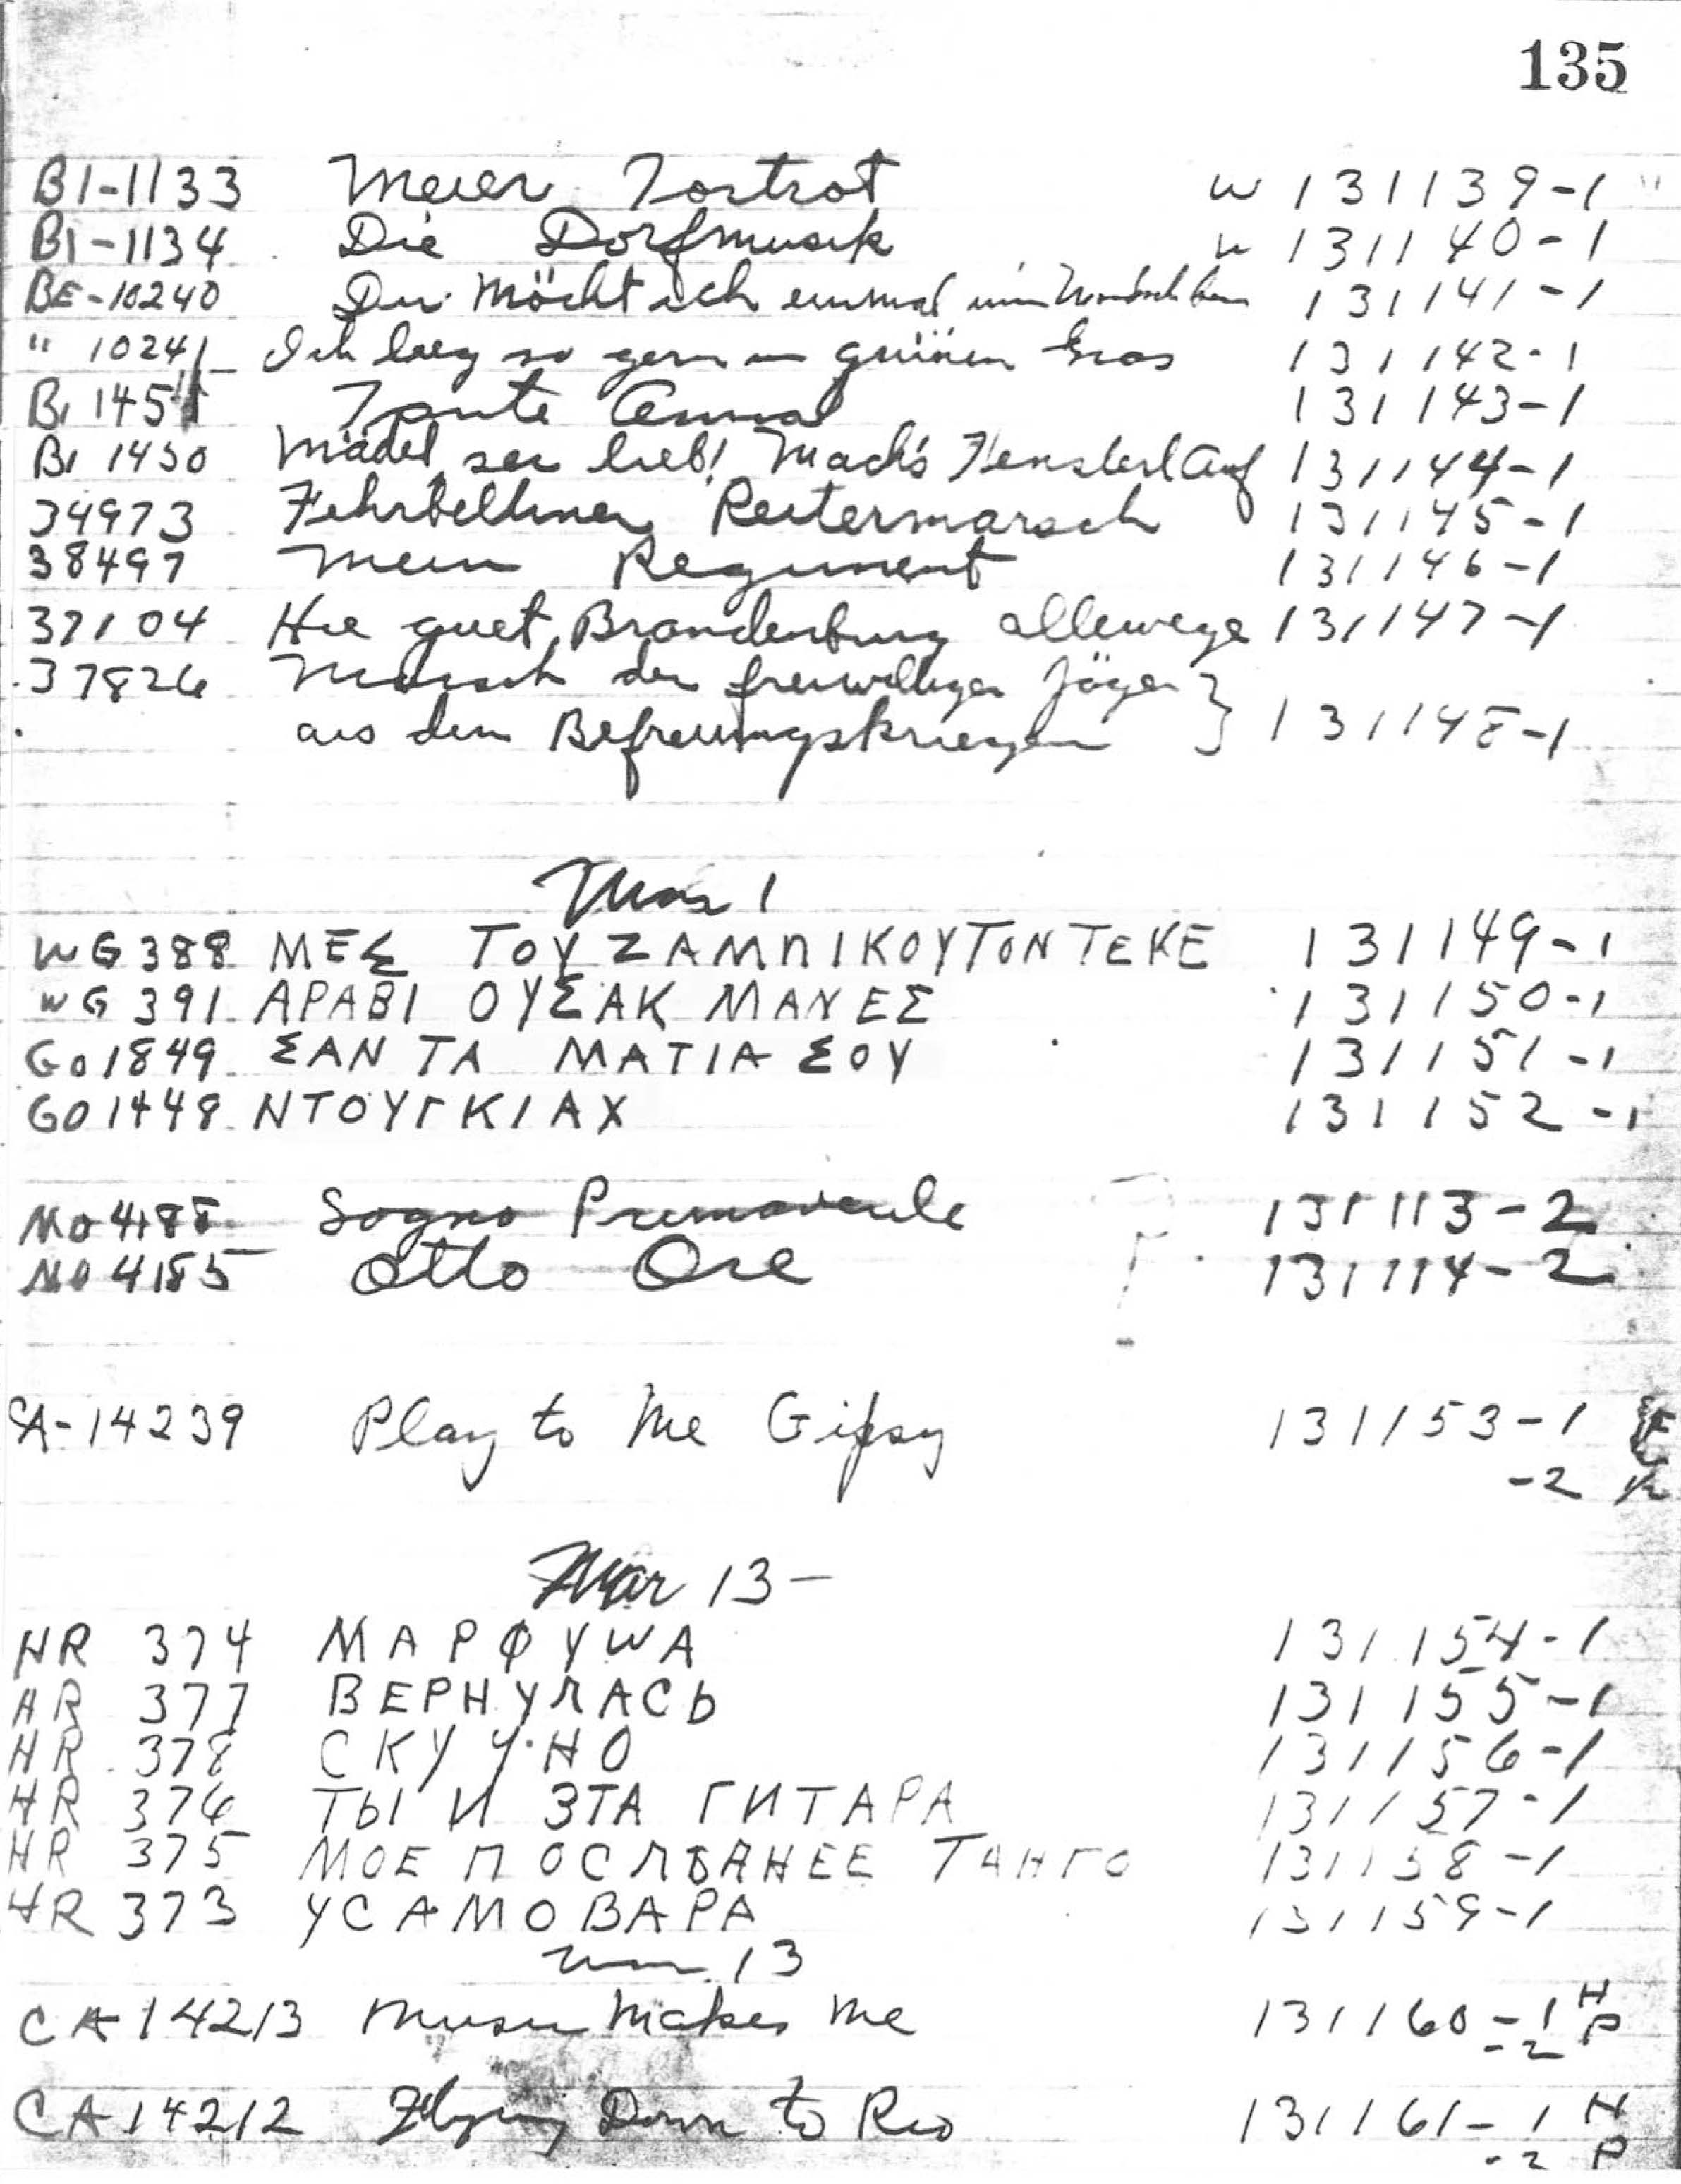 135
BI-1133 Meier Foxtrot W 131139-1 "
BI-1134 Die Dorfmusik W 131140-1
BE-10240 Du Möcht ich einmal 131141-1
" 10241 Ich lieg so gern im grünen Gras 131142-1
BI 1451 Tante Anna 131143-1
BI 1450 Mädel sei lieb! Mach's Fensterl Auf 131144-1
34973 Fehrbelliner Reitermarsch 131145-1
38497 Mein Regiment 131146-1
37104 Hie guet Brandenburg allewege 131147-1
37826 Marsch der freiwilligen Jäger }
aus den Befreiungskriegen } 131148-1
Mar 1
WG 388 ΜΕΣ ΤΟΥ ΖΑΜΠΙΚΟΥ ΤΟΝ ΤΕΚΕ 131149-1
WG 391 ΑΡΑΒΙ ΟΥΣΑΚ ΜΑΝΕΣ 131150-1
GO 1849 ΣΑΝ ΤΑ ΜΑΤΙΑ ΣΟΥ 131151-1
GO 1448 ΝΤΟΥΓΚΙΑΧ 131152-1
MO 4188 Sogno Primaverile 131113-2
MO 4185 Otto Ore 131114-2
CA-14239 Play to Me Gipsy 131153-1
-2
Mar 13-
HR 374 МАРФУША 131154-1
HR 377 ВЕРНУЛАСЬ 131155-1
HR 378 СКУЧНО 131156-1
HR 376 ТЫ И ЭТА ГИТАРА 131157-1
HR 375 МОЕ ПОСЛѢДНЕЕ ТАНГО 131158-1
HR 373 УСАМОВАРА 131159-1
Mar 13
CA 14213 Music Makes Me 131160-1 H
-2 P
CA 14212 Flying Down to Rio 131161-1 H
-2 P